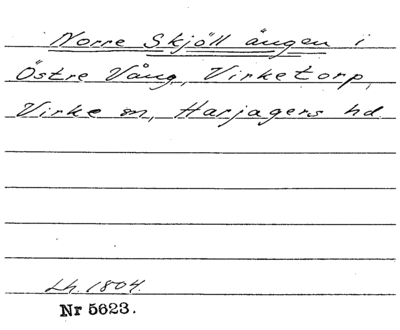 Norre Skjöll ängen i
Östre Vång, Virketorp,
Virke sn, Harjagers hd.
Lh. 1804.
Nr 5623.